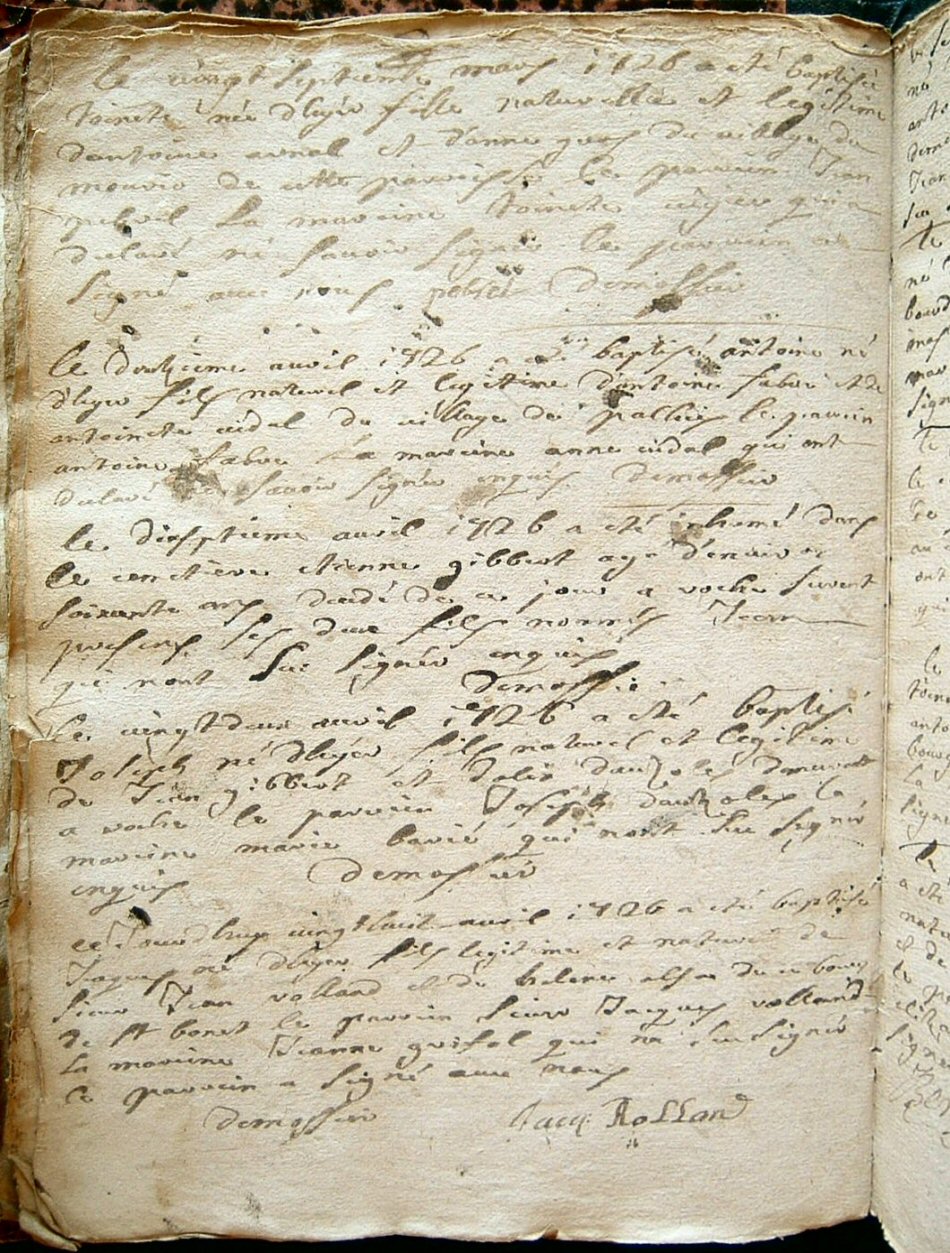 le vingt septieme mars 1726 a eté baptisée
toinete née d'hyer fille naturelle et legitime
d'antoine arnal et d'anne gros du village de
mourio de cette parroisse le parrein Jean
pelrel la marrine toinete qui a
declaré ne savoir signer le parrein a
signé avec nous pelrel Demossier
le douzieme avril 1726 a eté baptisé antoine né
d'hyer fils naturel et legitime d'antoine fabre et de
antoinete vidal du village de palhies le parrein
antoine fabre la marrine anne vidal qui ont
declaré ne savoir signer enquis Demossier
le diseptieme avril 1726 a eté inhumé dans
le cemetiere etienne gibbert agé d'environ
soixante ans decedé de ce jour a roche furent
presens ses deux fils nommés Jean
qui nont su signer enquis
Demossier
le vingt deux avril 1726 a eté baptisé
Joseph né d'hyer fils naturel et legitime
de Jean gibbert et d'alix dauzoles demeurant
a roche le parrein Joseph dauzoles la
marrine marie barié qui nont su signer
enquis Demossier
ce Jourdhuy vingthuit avril 1726 a eté baptisé
Jaques né d'hyer fils legitime et naturel de
sieur Jean rolland et de helene du ce bourg
de st bonet le parrein sieur Jacques rolland
la marrine Jeanne grifol qui na su signer
le parrein a signé avec nous
demossier Jacq. Rolland